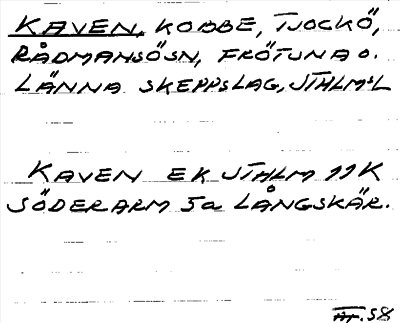 KAVEN, KOBBE, TJOCKÖ,
RÅDMANSÖSN, FRÖTUNA O.
LÄNNA SKEPPSLAG, STHLMSL
KAVEN EK STHLM 11K
SÖDERARM 5a LÅNGSKÄR.
.58